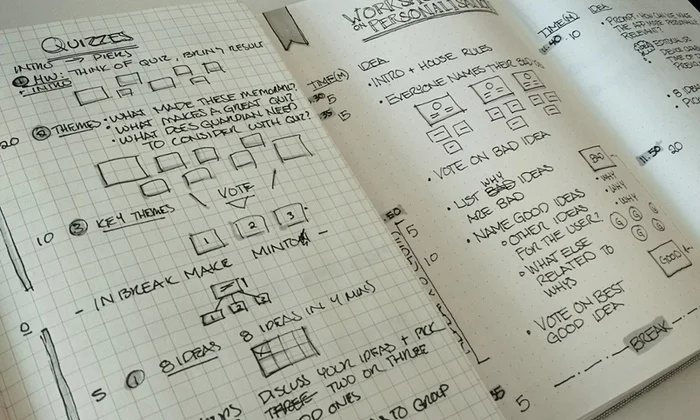 QUIZZES
INTRO → PIERS
① HW: THINK OF QUIZ, BRING RESULT
• INTROS
20
② THEMES • WHAT MADE THESE MEMORABLE?
• WHAT MAKES A GREAT QUIZ
• WHAT DOES GUARDIAN NEED
TO CONSIDER WITH QUIZ?
VOTE
10
③ KEY THEMES
1 2 3
- IN BREAK MAKE
-
1 2 3
0
5
① 8 IDEAS 8 IDEAS IN 4 MINS
DISCUSS YOUR IDEAS + PICK
THREE TWO OR THREE
TO GROUP
WORKSHOP
ON PERSONALISATION
TIME(M)
5
• INTRO + HOUSE RULES
15
• EVERYONE NAMES THEIR BAD
IDEA
• VOTE ON BAD IDEA
• LIST WHY BAD IDEAS
ARE BAD
5
• NAME GOOD IDEAS
• OTHER IDEAS
FOR THE USER?
10
• WHAT ELSE
RELATED TO
WHYS
• VOTE ON BEST
GOOD IDEA
BAD
• WHY
• WHY
• WHY
G G G
G G G
GOOD
BREAK
5
TIME(M) IDEA
10
RELEVANT?
11:50 20
• 8 IDEAS